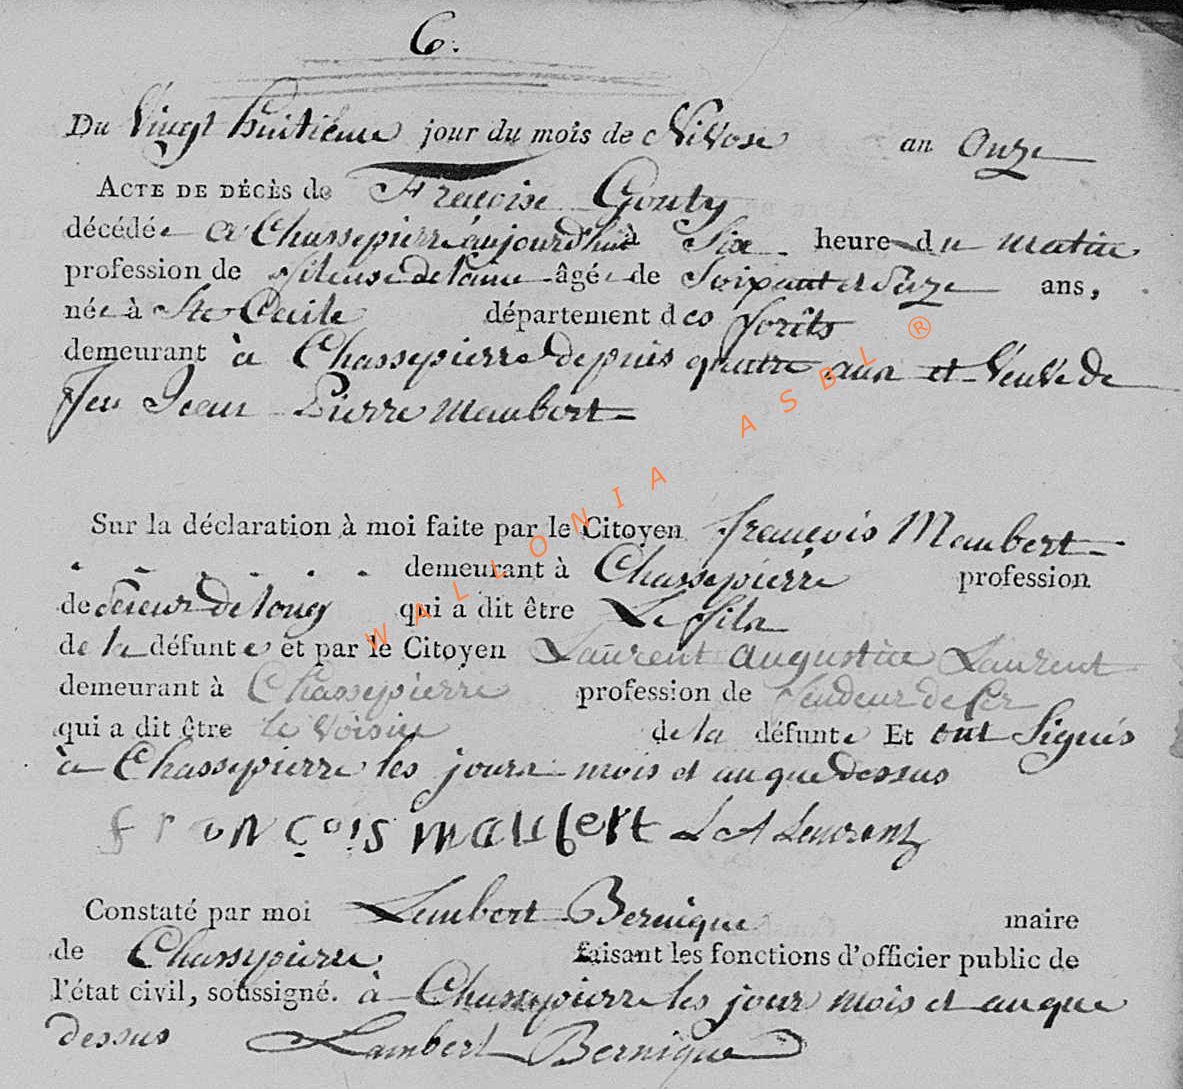 6.
Du Vingt huitieme jour du mois de Nivose an Onze
ACTE DE DÉCÈS de Francoise Gouty
décédée a Chassepierre aujourd'hui à Six heure du matin
profession de fileuse de laine âgée de Soixant et Seize ans,
née à Ste Cecile département des forêts
demeurant à Chassepierre depuis quattre ans et Veuve de
feu Jean Pierre Maubert
Sur la déclaration à moi faite par le Citoyen françois Maubert
demeurant à Chassepierre profession
de Scieur De long qui a dit être Le fils
de la défunte et par le Citoyen Laurent augustin Laurent
demeurant à Chassepierre profession de fendeur de fer
qui a dit être le Voisin de la défunte Et ont Signés
à Chassepierre les jours mois et an que dessus
françois maubert L A Laurent
Constaté par moi Lambert Bernique maire
de Chassepierre faisant les fonctions d'officier public de
l'état civil, soussigné. à Chassepierre les jour mois et an que
dessus Lambert Bernique
WALLONIA ASBL ®